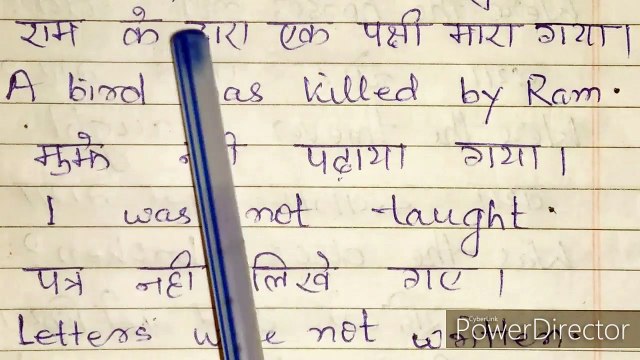 राम के द्वारा एक पक्षी मारा गया।
A bird was killed by Ram.
मुझे नही पढ़ाया गया।
I was not taught.
पत्र नही लिखे गए।
Letters were not written.
CyberLink
PowerDirector